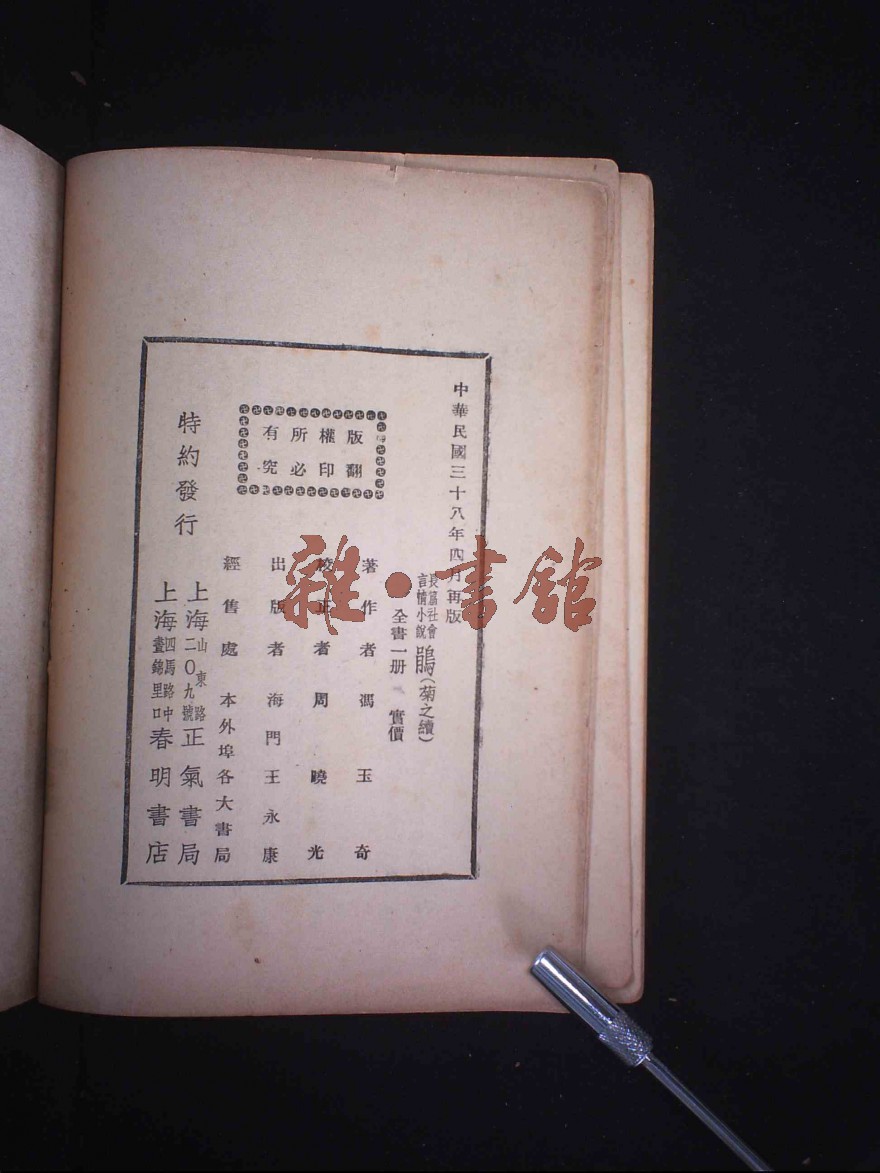 中華民國三十八年四月再版
長篇社會
言情小說
鵑(菊之續)
全書一册 實價
版權所有
翻印必究
著作者 馮玉奇
校正者 周曉光
出版者 海門王永康
經售處 本外埠各大書局
特約發行
上海山東路二〇九號正氣書局
上海四馬路中畫錦里口春明書店
雜·書館